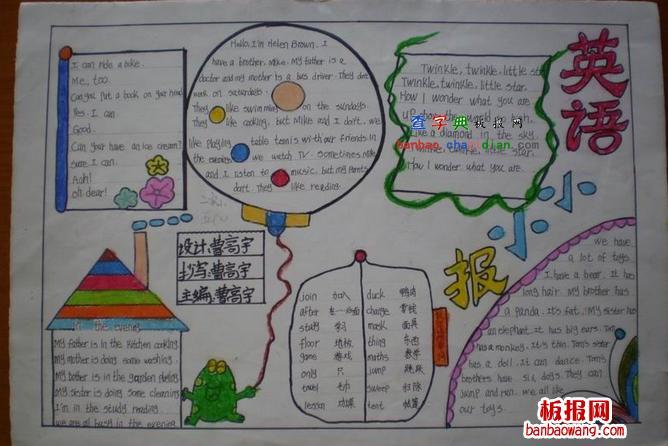 I can ride a bike.
Me, too.
Can you put a book on your head
Yes. I can.
Good.
Can your have an ice cream?
sure. I can.
Aah!
Oh dear!
Hello, I'm Helen Brown. I
have a brother. Mike. My father is a
doctor and my mother is a bus driver. They
work on saturdays.
They like swimming on the sundays.
They like cooking, but Mike and I don't. we
like playing table tennis with our friends in
the evening we watch TV. Sometimes Mike
and I listen to music, but my parents
don't. They like reading.
Twinkle, twinkle, little star
Twinkle, twinkle, little star.
How I wonder what you are
up above the world
Like a diamond in the sky.
Twinkle, twinkle, little star,
How I wonder what you are.
查字典板报网
banbao.chazidian.com
英语
小小
报
设计:曹高宇
抄写:曹高宇
主编:曹高宇
in the evening
My father is in the kitchen cooking
My mother is doing some washing.
My brother is in the garden playing
My sister is doing some cleaning
I'm in the study reading.
we are all busy in the evening
join 加入 duck 鸭肉
after 在…后面 change 零钱
study 学习 mask 面具
floor 地板 thing 东西
game 游戏 maths 数学
only 只 jump 跳跃
towel 毛巾 sweep 扫除
lesson 功课 tent 帐篷
we have
a lot of toys.
I have a bear. It has
long hair. My brother has
a panda. It's fat. My sister has
an elephant. It has big ears. Tom
has a monkey. It's thin. Tom's sister
has a doll. It can dance. Tom's
brothers have six dogs. They can
jump and run. we all like
our toys.
板报网
banbaowang.com